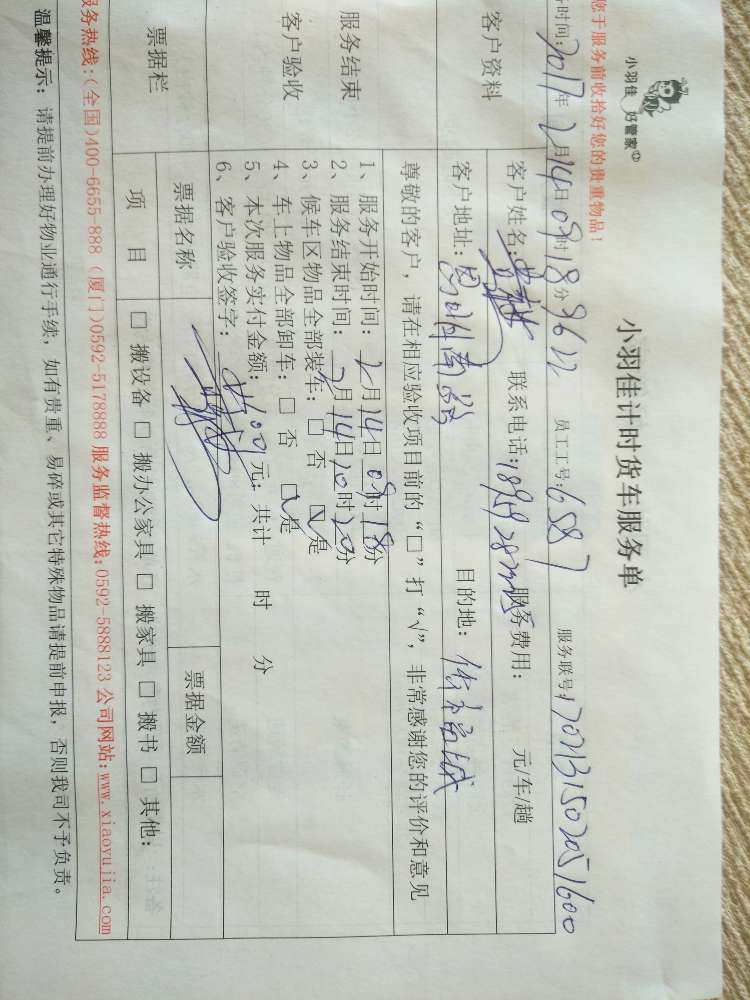 小羽佳
好管家
小羽佳计时货车服务单
您于服务前收拾好您的贵重物品!
时间: 2017年 2月14日 09时18分 员工工号: 6587 服务联号: 170213150205 1600
客户资料
客户姓名: 联系电话: 服务费用: 元/车/趟
客户地址: 目的地:
尊敬的客户,请在相应验收项目前的“□”打“√”,非常感谢您的评价和意见
服务结束
客户验收
1、服务开始时间: 2月14日09时18分
2、服务结束时间: 2月14日10时20分
3、候车区物品全部装车: □ 否 ☑ 是
4、车上物品全部卸车: □ 否 ☑ 是
5、本次服务实付金额: 元; 共计 时 分
6、客户验收签字:
票据栏
票据名称 票据金额
项 目 □ 搬设备 □ 搬办公家具 □ 搬家具 □ 搬书 □ 其他:
服务热线:(全国)400-6655-888 (厦门)0592-5178888 服务监督热线: 0592-5888123 公司网站: www.xiaoyujia.com
温馨提示: 请提前办理好物业通行手续,如有贵重、易碎或其它特殊物品请提前申报,否则我司不予负责。